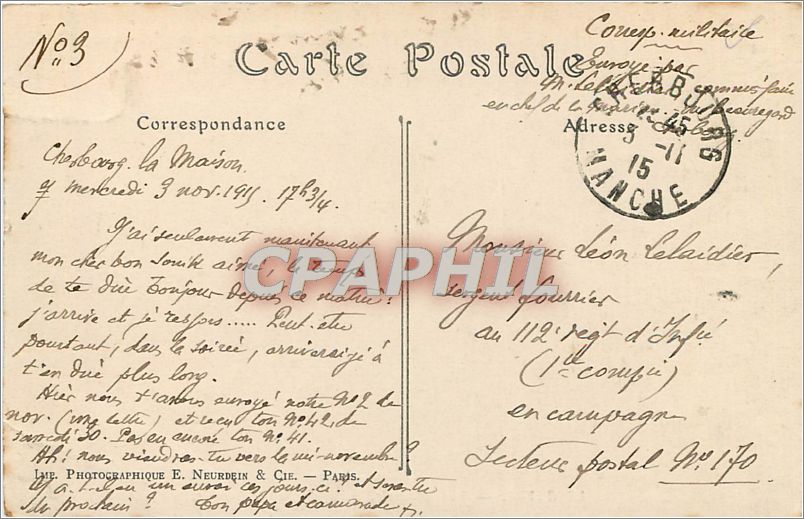 No 3
Carte Postale
Corresp. militaire
Envoyé par
M. Lelaidier commis
en chef de la
CHERBOURG
45
3 -11
15
MANCHE
Correspondance
Adresse
Cherbourg. la Maison.
mercredi 3 nov. 1915. 17h 3/4.
J'ai seulement maintenant,
mon cher bon aimé, le temps
de te dire bonjour depuis ce matin :
j'arrive et je repars..... Peut-être
pourtant, dans la soirée, arriverai-je à
t'en dire plus long.
Hier nous t'avons envoyé notre No 2 de
nov. (une lettre) et reçu ton No 42, de
samedi 30. Pas encore ton No 41.
Ah ! nous viendras-tu vers la mi-novembre ?
un prochain ? Ton papa et camarade
Monsieur Léon Lelaidier,
sergent fourrier
au 112e régt d'Infie
(1re compie)
en campagne
Secteur postal No 170
CPAPHIL
Imp. Photographique E. Neurdein & Cie. — Paris.